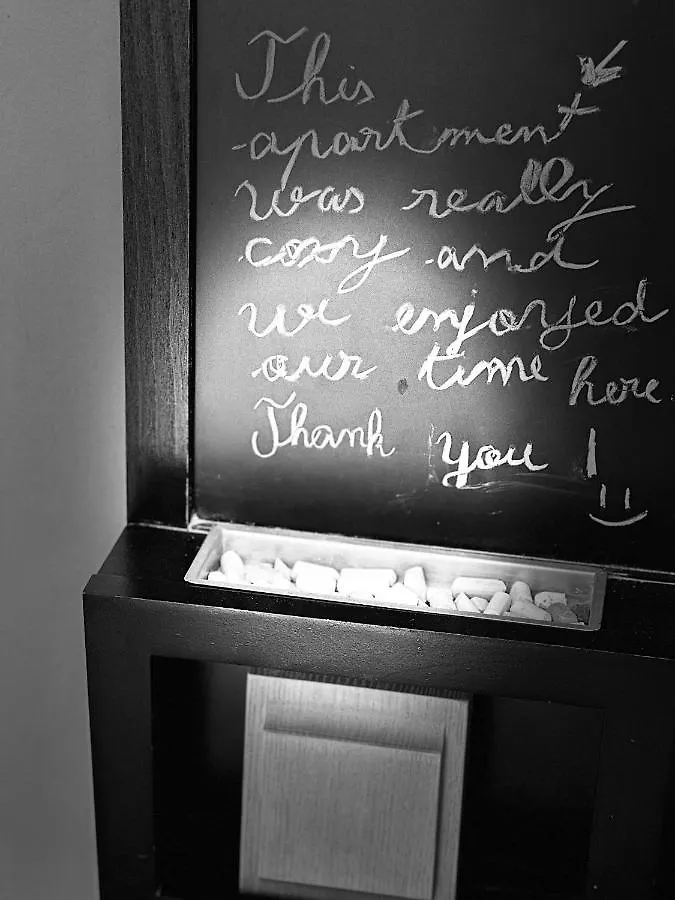 This
apartment
was really
cosy and
we enjoyed
our time here.
Thank you!